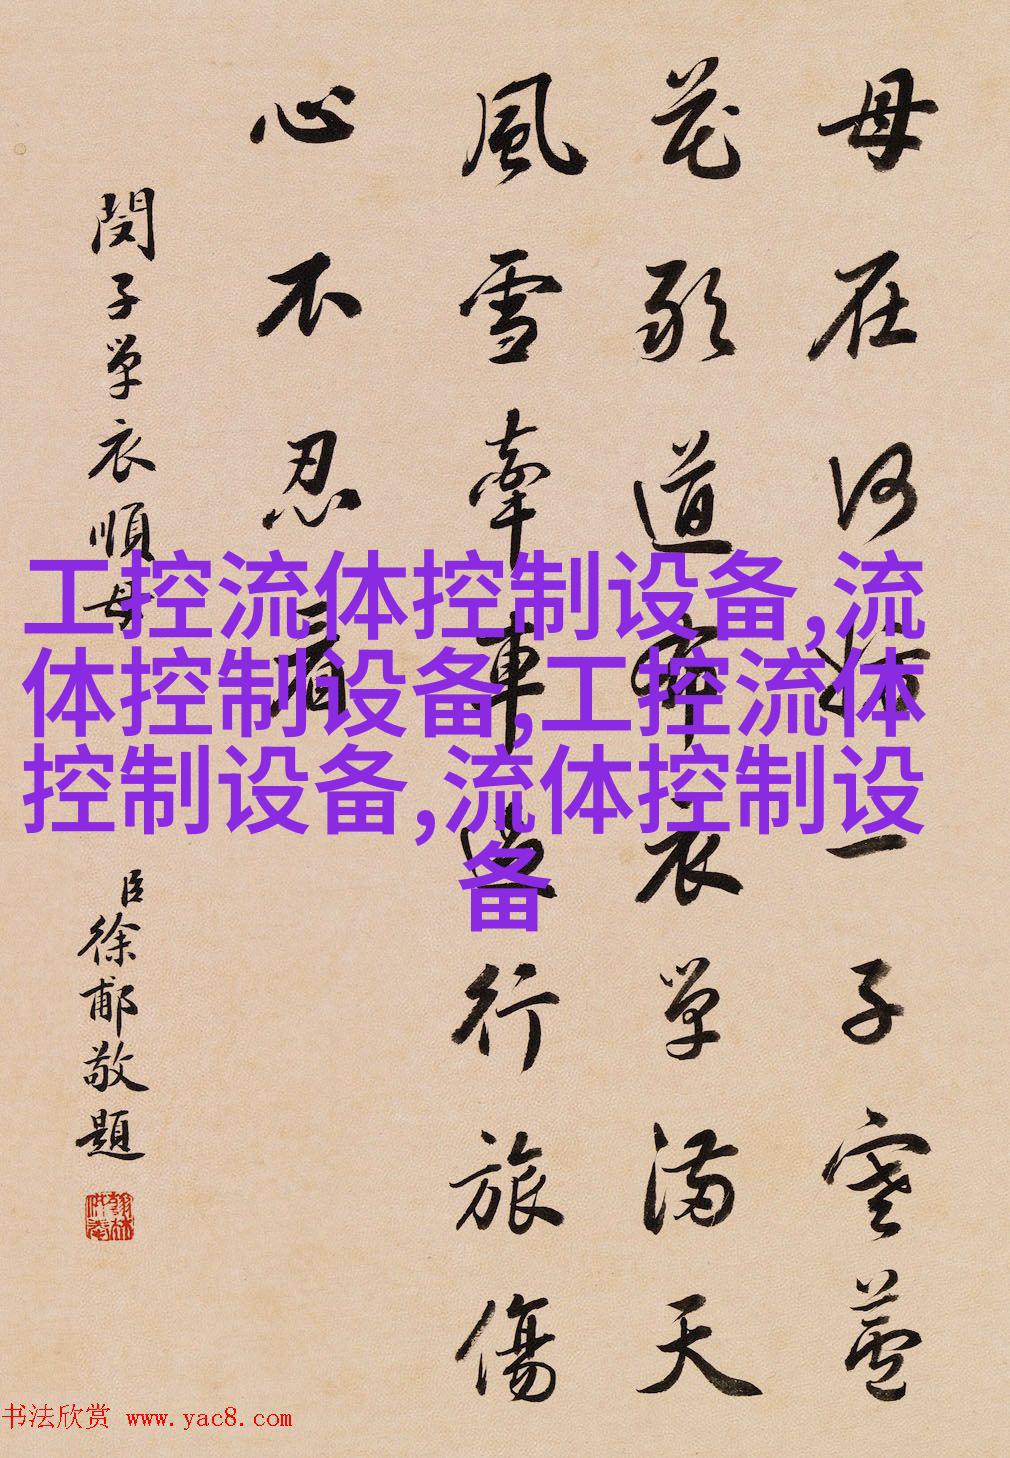 母在何妨一子寒蘆
花道衣单滿天
風雪牽車過行旅傷
心不忍看
閔子单衣順母
臣徐郙敬題
工控流体控制设备,流
体控制设备,工控流体
控制设备,流体控制设
备
书法欣赏 www.yac8.com